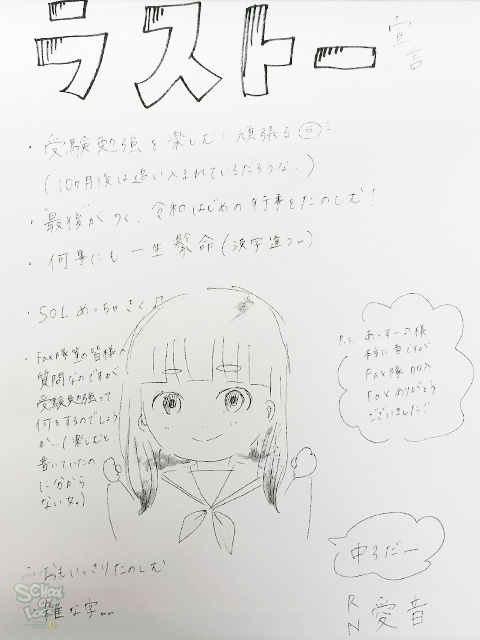 ラストー
宣言
・受験勉強を楽しむ！頑張る
(10ヶ月後は追い入まれているだろうな。)
・"最後"がつく、令和はじめの行事をたのしむ！
・何事にも一生懸命(漢字違う)
・SOLめっちゃきく♪
・Fax隊等の皆様へ
質問なのですが
受験勉強って
何をするのでしょう
か…(楽しむと
書いていたの
に分から
ない女。)
P.S. あっすー♪様
本当に昔ですが
FAX隊加入
Faxありがとう
ございました!!
・おもいっきりたのしむ
SCHOOL OF LOCK!
雑な字…
中3だー
RN 愛音